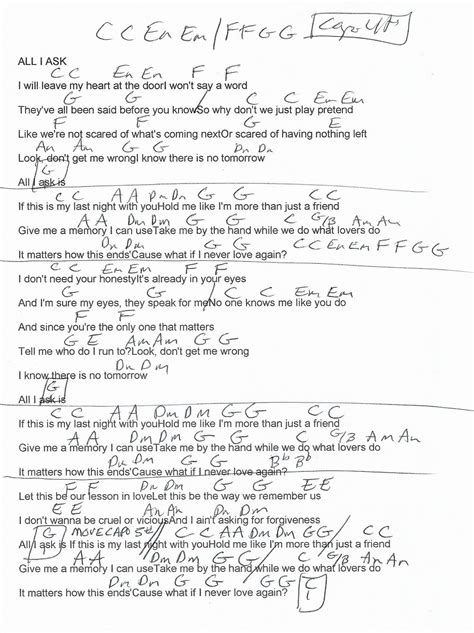 C C Em Em / F F G G Capo 4th
ALL I ASK
C C Em Em F F
I will leave my heart at the doorI won't say a word
G G C C Em Em
They've all been said before you knowSo why don't we just play pretend
F F G E
Like we're not scared of what's coming nextOr scared of having nothing left
Am Am G G Dm Dm
Look, don't get me wrongI know there is no tomorrow
G
All I ask is
C C A A Dm Dm G G C C
If this is my last night with youHold me like I'm more than just a friend
A A Dm Dm G G C G/B Am Am
Give me a memory I can useTake me by the hand while we do what lovers do
Dm Dm G G C C Em Em F F G G
It matters how this ends'Cause what if I never love again?
C C Em Em F F
I don't need your honestyIt's already in your eyes
G G C C Em Em
And I'm sure my eyes, they speak for meNo one knows me like you do
F F
And since you're the only one that matters
G E Am Am G G
Tell me who do I run to?Look, don't get me wrong
Dm Dm
I know there is no tomorrow
G
All I ask is
C C A A Dm Dm G G C C
If this is my last night with youHold me like I'm more than just a friend
A A Dm Dm G G C G/B Am Am
Give me a memory I can useTake me by the hand while we do what lovers do
Dm Dm G G Bb Bb
It matters how this ends'Cause what if I never love again?
F F Dm Dm G G E E
Let this be our lesson in loveLet this be the way we remember us
E E Am Am Dm Dm
I don't wanna be cruel or viciousAnd I ain't asking for forgiveness
G MOVE CAPO 5th / C C A A Dm Dm G G / C C
All I ask is If this is my last night with youHold me like I'm more than just a friend
A A Dm Dm G G C G/B Am Am
Give me a memory I can useTake me by the hand while we do what lovers do
Dm Dm G G C
It matters how this ends'Cause what if I never love again?